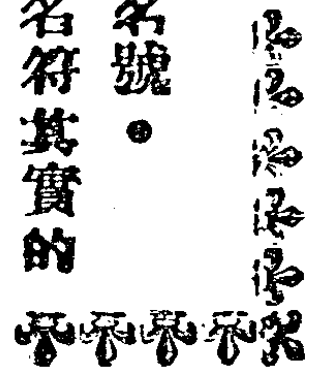 名號。
名符其實的